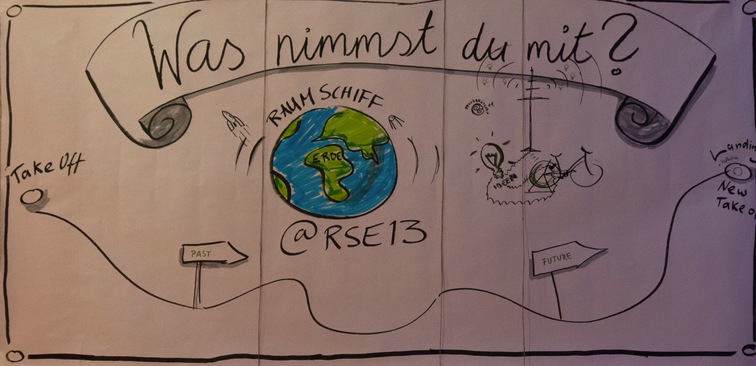 Was nimmst du mit?
RAUMSCHIFF
ERDE
@RSE13
Take Off
PAST
IDEEN
FUTURE
Landin
New
Take o